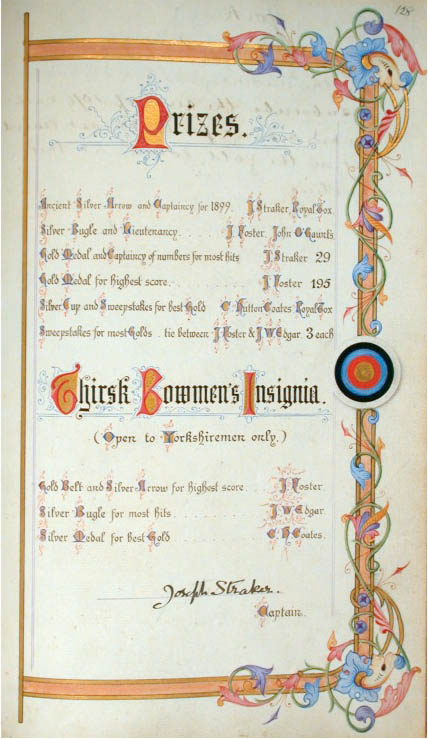 128
Prizes.
Ancient Silver Arrow and Captaincy for 1899. J Straker, Royal Tox.
Silver Bugle and Lieutenancy . . . . . . J Foster, John O'Gaunt's
Gold Medal and Captaincy of numbers for most hits J Straker 29
Gold Medal for highest score . . . . . . . . . J Foster 195
Silver Cup and Sweepstakes for best Gold C Hutton Coates Royal Tox
Sweepstakes for most Golds . . tie between J Foster & J W Edgar. 3 each
Thirsk Bowmen's Insignia.
(Open to Yorkshiremen only.)
Gold Belt and Silver Arrow for highest score . . . . J Foster.
Silver Bugle for most hits . . . . . . . . . . J W Edgar.
Silver Medal for best Gold . . . . . . . . . . C H Coates.
Joseph Straker.
Captain.